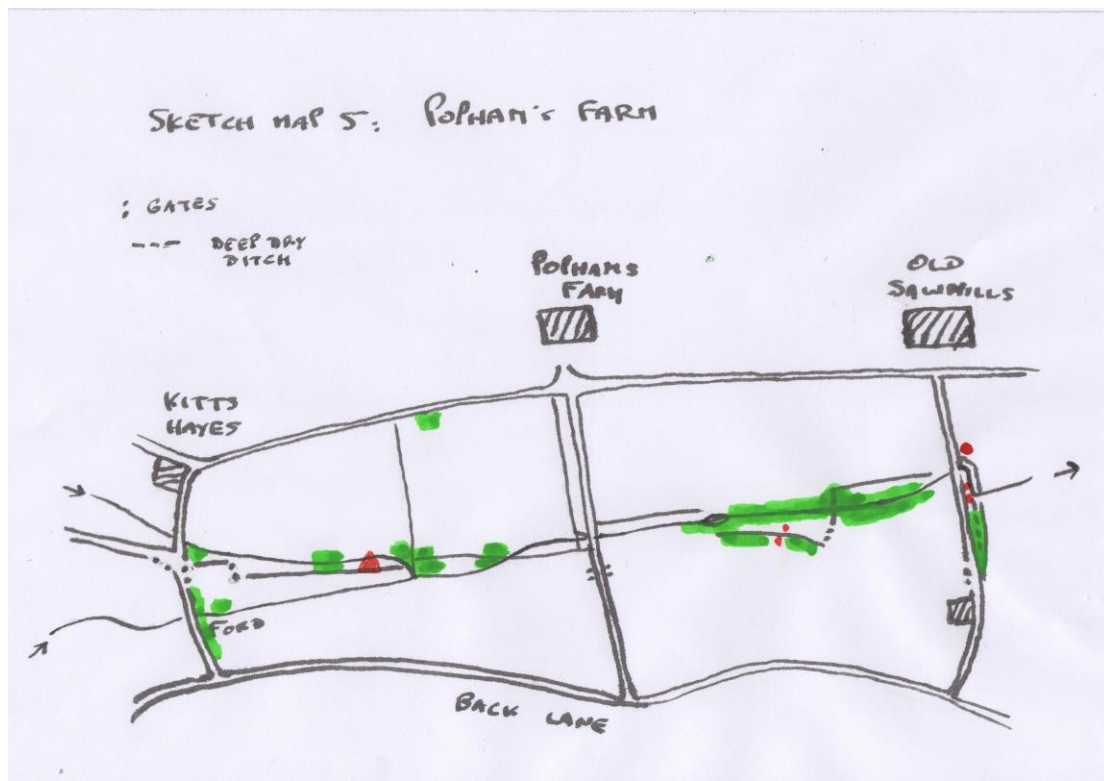 SKETCH MAP 5: POPHAM'S FARM
: GATES
--- DEEP DRY
DITCH
POPHAMS
FARM
OLD
SAWMILLS
KITTS
HAYES
FORD
BACK LANE